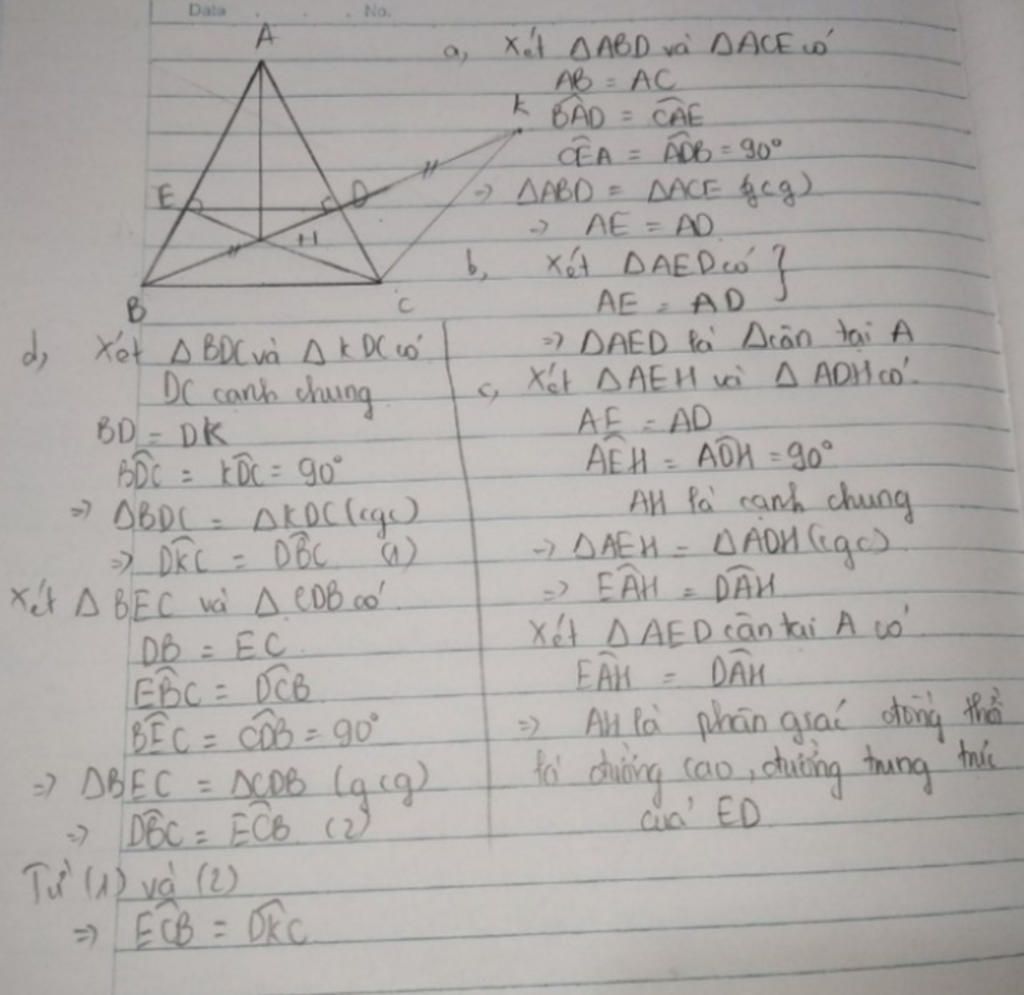 Data No.
A
K
E
D
H
B
C
a, Xét ΔABD và ΔACE có
AB = AC
BÂD = CÂE
CÊA = ADB = 90°
=> ΔABD = ΔACE (gcg)
=> AE = AD
b, Xét ΔAED có }
AE = AD
=> ΔAED là Δcân tại A
c, Xét ΔAEH và ΔADH có
AE = AD
AÊH = ADH = 90°
AH là cạnh chung
=> ΔAEH = ΔADH (cgc)
=> EÂH = DÂH
Xét ΔAED cân tai A có
EÂH = DÂH
=> AH là phân giác đồng thơ
là đường cao, đường trung trức
của ED
d, Xét ΔBDC và ΔKDC có
DC canh chung
BD = DK
BDC = KDC = 90°
=> ΔBDC = ΔKDC (cgc)
=> DKC = DBC (1)
Xét ΔBEC và ΔCDB có
DB = EC
EBC = DCB
BÊC = CDB = 90°
=> ΔBEC = ΔCDB (gcg)
=> DBC = ECB (2)
Từ (1) và (2)
=> ECB = DKC